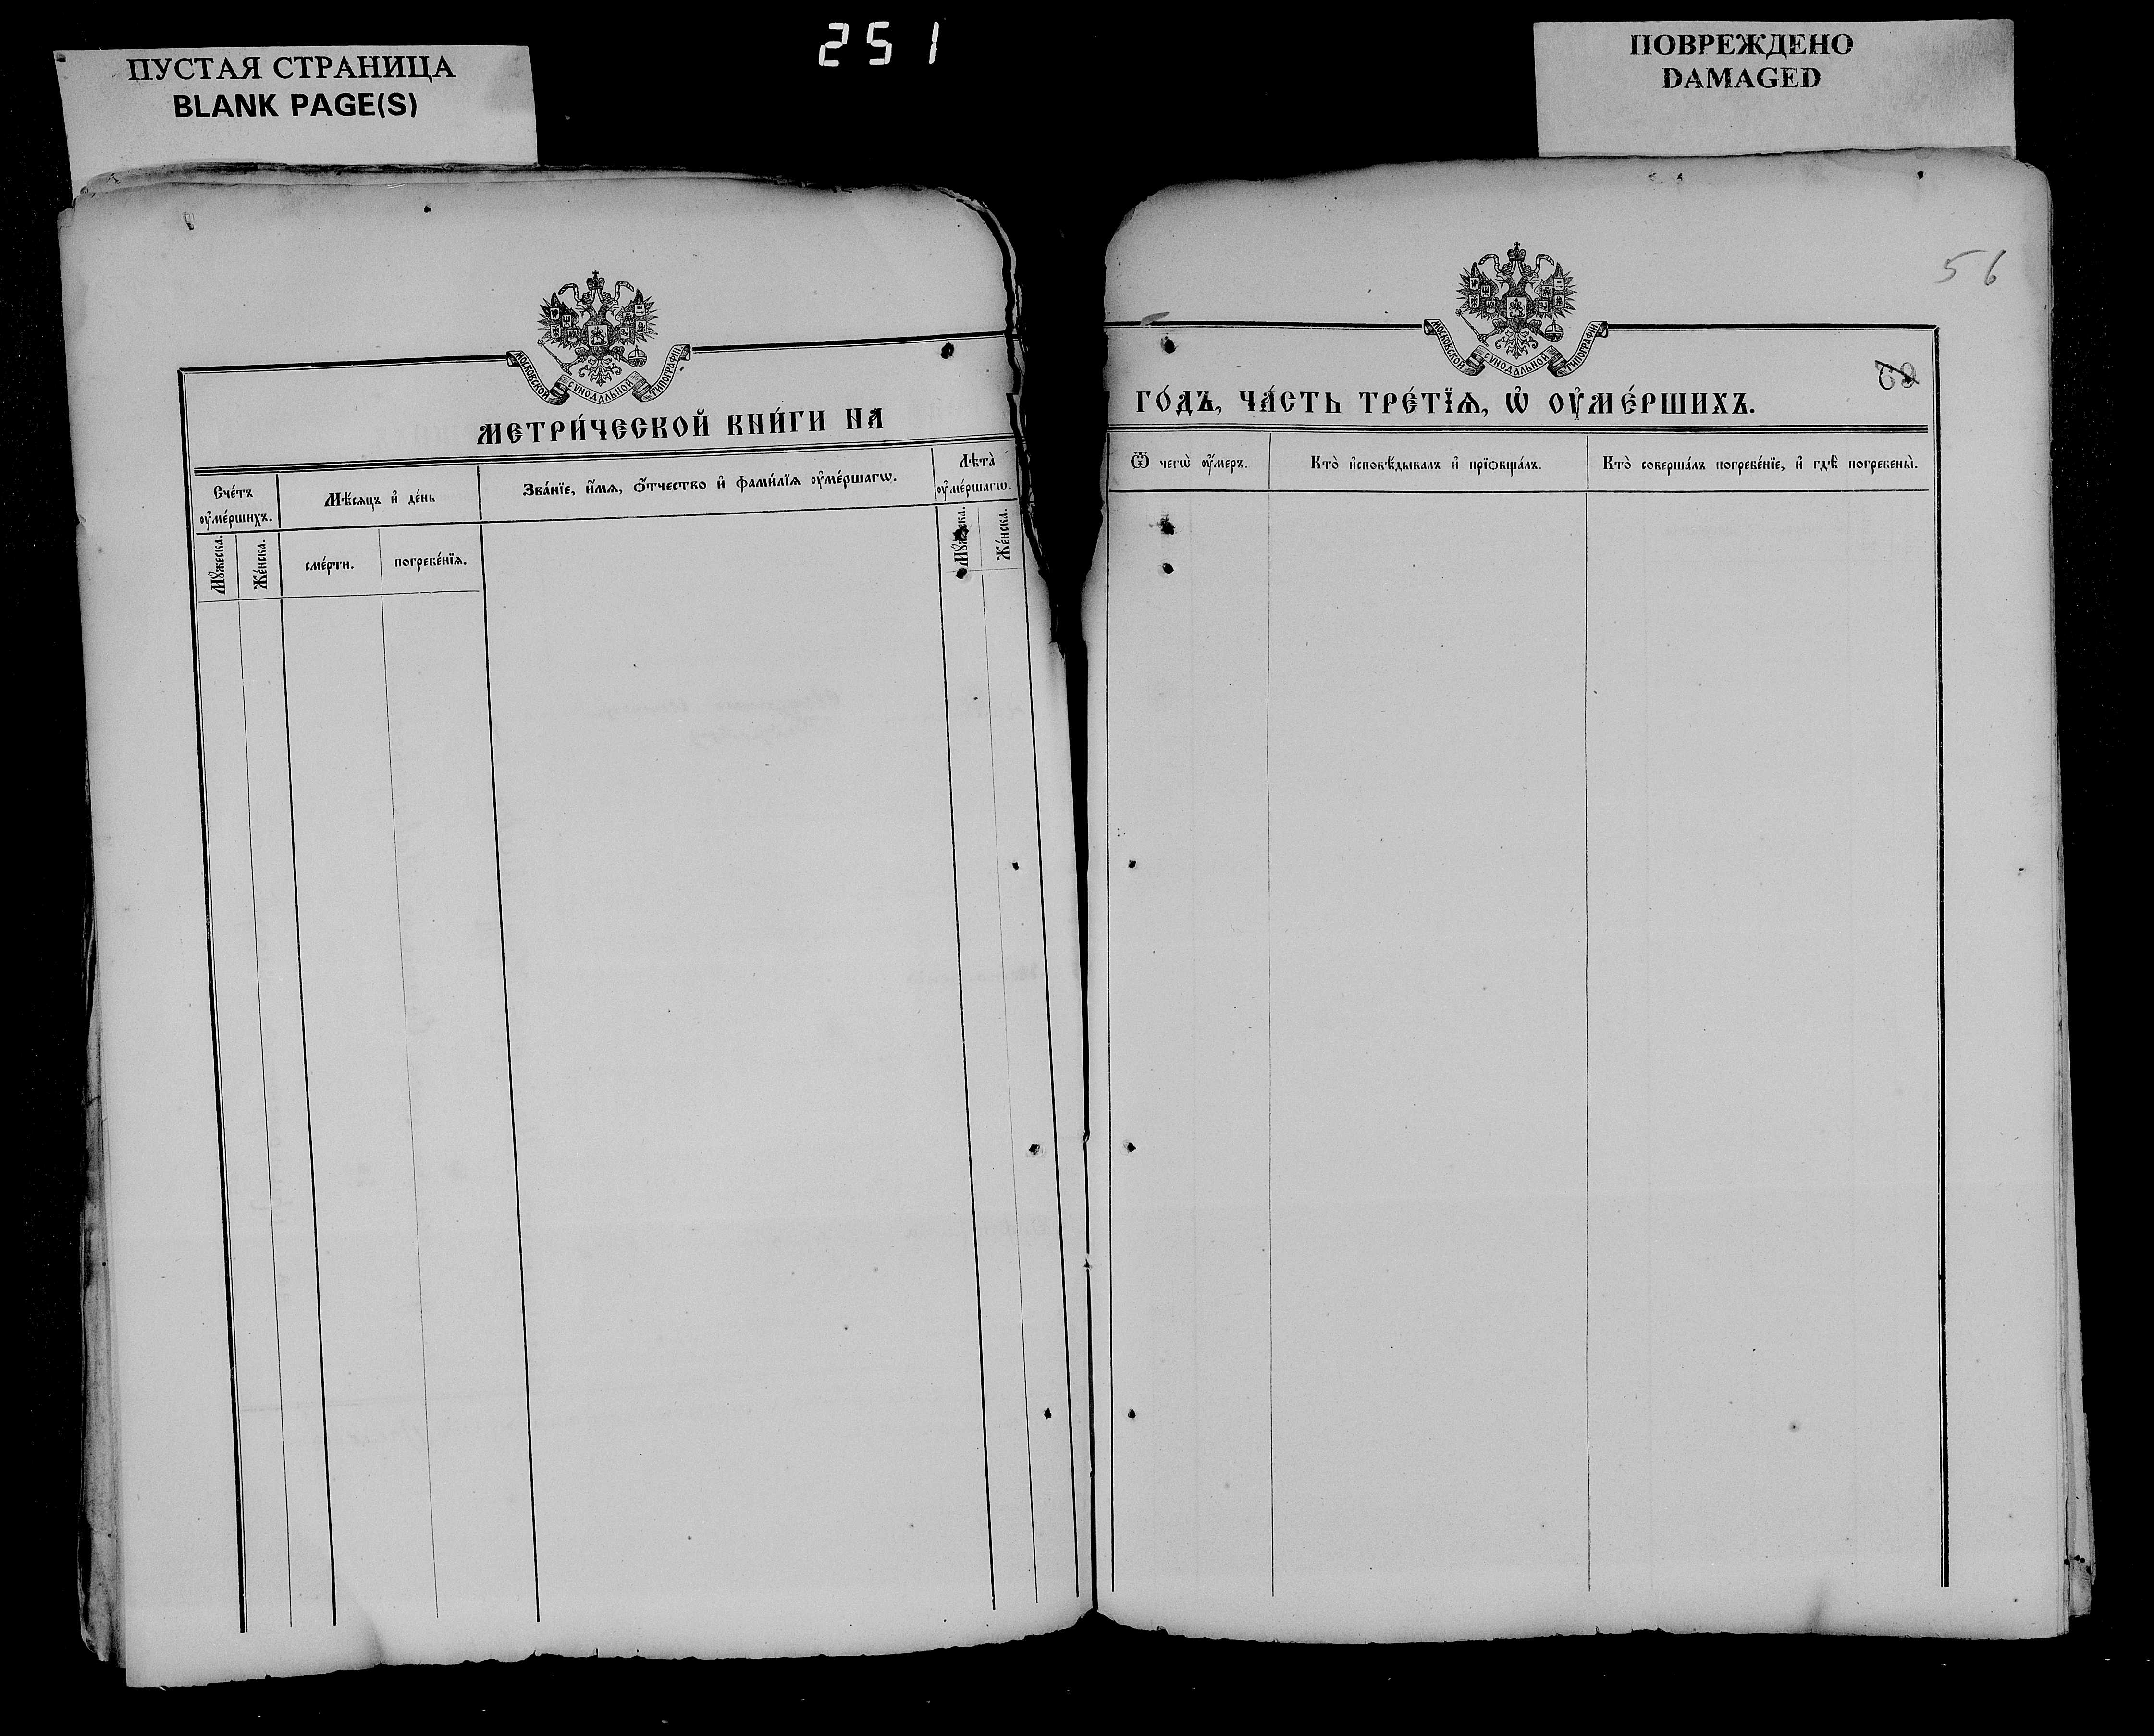 ПУСТАЯ СТРАНИЦА
BLANK PAGE(S)
251
ПОВРЕЖДЕНО
DAMAGED
МОСКОВСКОЙ СѴНОДАЛЬНОЙ ТИПОГРАФІИ
МЕТРИ́ЧЕСКОЙ КНИ́ГИ НА
Сче́тъ
ᲂу҆ме́ршихъ.
Мѣ́сѧцъ и҆ де́нь
Зва́нїе, и҆́мѧ, ѻ҆́тчество и҆ фами́лїѧ ᲂу҆ме́ршагѡ.
Лѣ̀та
ᲂу҆ме́ршагѡ.
Мꙋ́жеска.
Же́нска.
сме́рти.
погребе́нїѧ.
Мꙋ́жеска.
Же́нска.
56
МОСКОВСКОЙ СѴНОДАЛЬНОЙ ТИПОГРАФІИ
ГО́ДЪ, ЧА́СТЬ ТРЕ́ТЇѦ, Ѡ҆ ОУ҆МЕ́РШИХЪ.
Ѿ чегѡ̀ ᲂу҆́меръ.
Кто̀ и҆сповѣ́дывалъ и҆ прїѡбща́лъ.
Кто̀ соверша́лъ погребе́нїе, и҆ гдѣ̀ погребены̀.